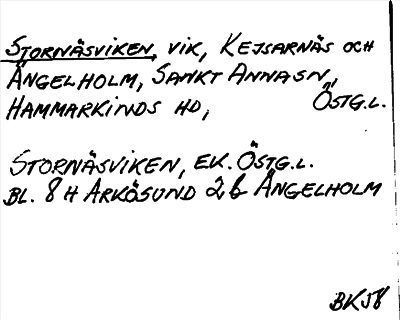 STORNÄSVIKEN, VIK, KEJSARNÄS OCH
ÄNGELHOLM, SANKT ANNA SN,
HAMMARKINDS HD, ÖSTG.L.
STORNÄSVIKEN, EK. ÖSTG.L.
BL. 8 H ARKÖSUND 2 b ÄNGELHOLM
BK58